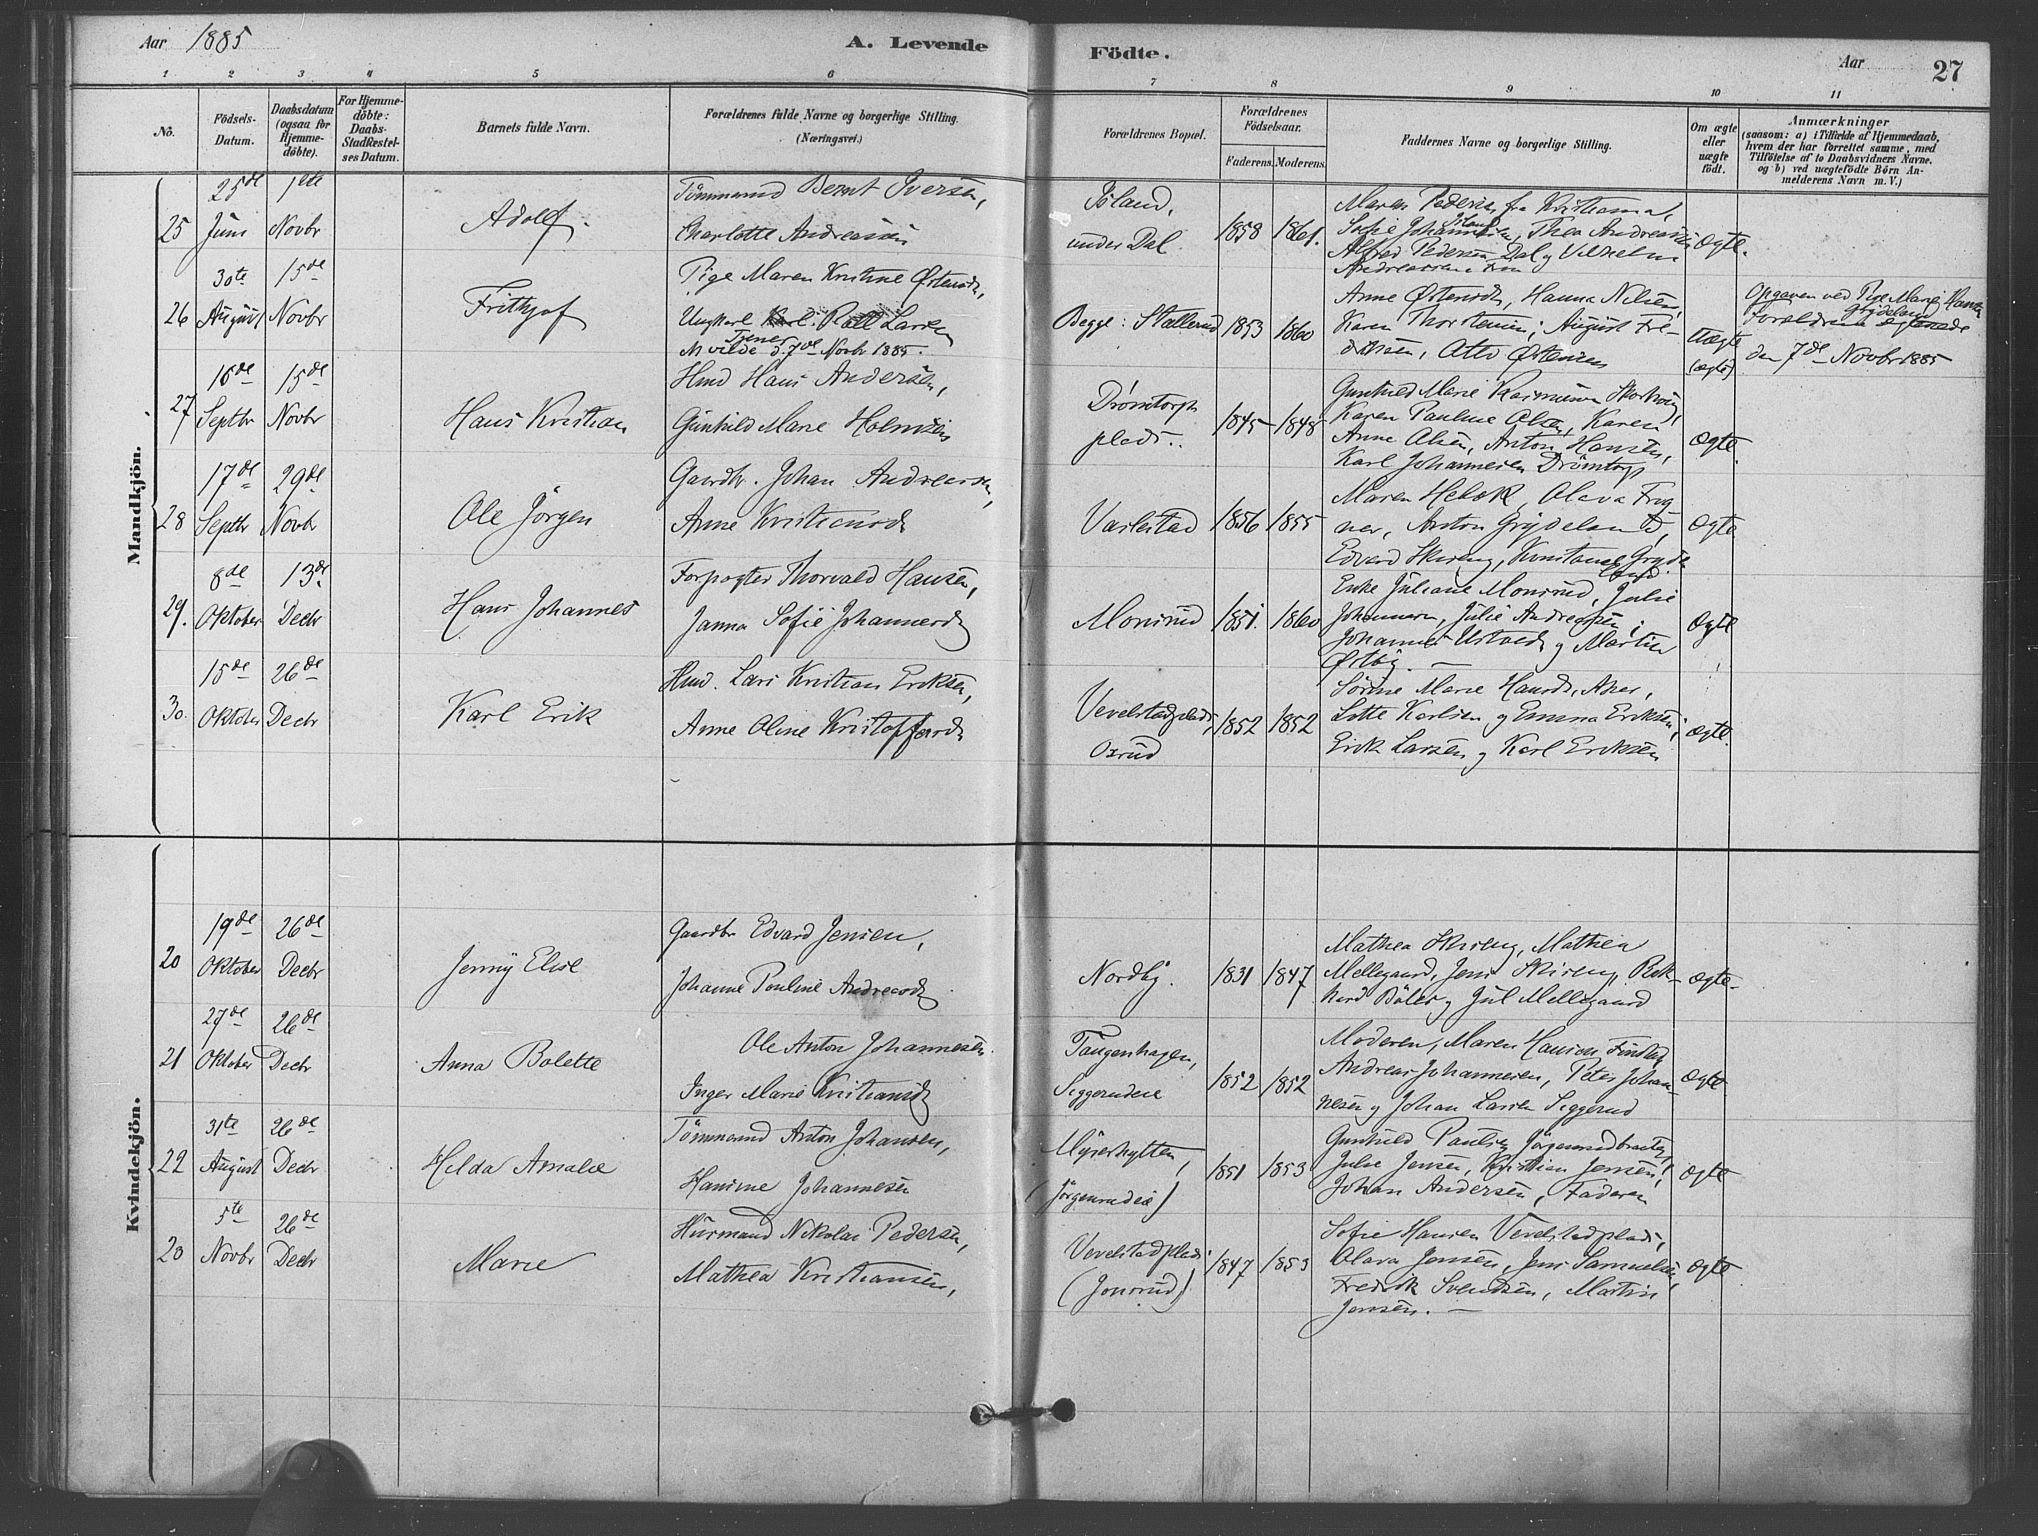 Aar 1885
A. Levende Födte.
Aar
27
1 2 3 4 5 6 7 8 9 10 11
No.
Födsels-Datum.
Daabsdatum (ogsaa for Hjemme-döbte).
For Hjemme-döbte: Daabs-Stadfæstel-ses Datum.
Barnets fulde Navn.
Forældrenes fulde Navne og borgerlige Stilling. (Næringsvei.)
Forældrenes Bopæl.
Forældrenes Födselsaar.
Faderens. Moderens.
Faddernes Navne og borgerlige Stilling.
Om ægte eller uægte födt.
Anmærkninger
(saasom: a) i Tilfælde af Hjemmedaab, hvem der har forrettet samme, med Tilföielse af to Daabsvidners Navne. og b) ved uægtefödte Börn An-melderens Navn m. V.)
Mandkjön.
25
25de Juni
1ste Novbr
Adolf.
Tömmermand Bernt Iversen,
Charlotte Andreassen
under Dal
1858 1861.
Maren Pedersen fra Kristiania,
Sofie Johannesen, Thea Andreassen
Alfred Pedersen Dal og Vilhelm
Andreassen
Ægte.
26
30te August
15de Novbr
Frithjof
Pige Maren Kristine Østensd.,
Ungkarl Rolf Larsen
Tjener
M viede d. 7de Novbr 1885.
Begge: Stallerud
1853 1860
Anne Østensd., Hanna Nilsen,
Karen Thorstensen, August Fre-
driksen, Otto Østensen
Uægte
(ægte)
Opgaven ved Pige Marie Hansen
Forældrene ægteviede
den 7de Novbr 1885
27
16de Septbr
15de Novbr
Hans Kristian
Hmd Hans Andersen,
Gunhild Marie Holmsen
Drömtorp
plads.
1845 1848
Gunhild Marie Rasmussen
Karen Pauline Olsen, Karen
Anne Olsen, Anton Hansen,
Karl Johannesen Drömtorp
Ægte.
28
17de Septbr
29de Novbr
Ole Jörgen
Gaardbr. Johan Andreassen,
Anne Kristiansd.
Vaslestad
1856 1855
Maren Hebæk, Olava Frog-
ner, Anton Grydeland,
Edvard Skreng, Konstance Gryde
land
Ægte
29.
8de Oktober
13de Decbr
Hans Johannes
Forpagter Thorvald Hansen,
Janna Sofie Johannesd.
Monsrud
1851. 1860
Enke Juliane Monsrud, Julie
Johannesen, Julie Andreassen;
Johannes Ustved og Martin
Østby. —
Ægte
30.
15de Oktober
26de Decbr
Karl Erik
Hmd. Lars Kristian Eriksen,
Anne Oline Kristoffersd.
Vevelstadplads,
Oxrud
1852 1852
Sörine Marie Hansd. Aas,
Lotte Karlsen og Emma Eriksen;
Erik Larsen og Karl Eriksen
Ægte.
Kvindekjön.
20
19de Oktober
26de Decbr
Jenny Elise
Gaardbr Edvard Jensen,
Johanne Pauline Andreasd.
Nordby.
1831 1847
Mathea Skreng, Mathea
Mellegaard, Jens Skreng, Rik-
hard Böler og Jul Mellegaard
Ægte.
21
27de Oktober
26de Decbr
Anna Bolette
Ole Anton Johannesen
Inger Marie Kristiansd.
Tangenhagen,
Siggerudeie
1852 1852
Moderen, Maren Hansen Finstad,
Andreas Johannesen, Peter Johan-
nesen og Johan Larsen Siggerud
Ægte
22
31te August
26de Decbr
Hilda Amalie
Tömmermand Anton Johansen,
Hanine Johannesen
Myrerhytten,
(Jörgenrudeie)
1851 1853
Gunhild Paulsen Jörgensrudbraaten,
Julie Jensen, Kristian Jensen,
Johan Andersen, Faderen
Ægte
20
5te Novbr
26de Decbr
Marie
Husmand Nikolai Pedersen,
Mathea Kristiansen,
Vevelstadplads
(Jonsrud)
1847 1853
Sofie Hansen Vevelstadplads,
Olava Jensen, Jens Samuelsen,
Fredrik Svendsen, Martin
Jensen. —
Ægte